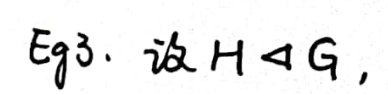 Eg3. 设 H ⊲ G,